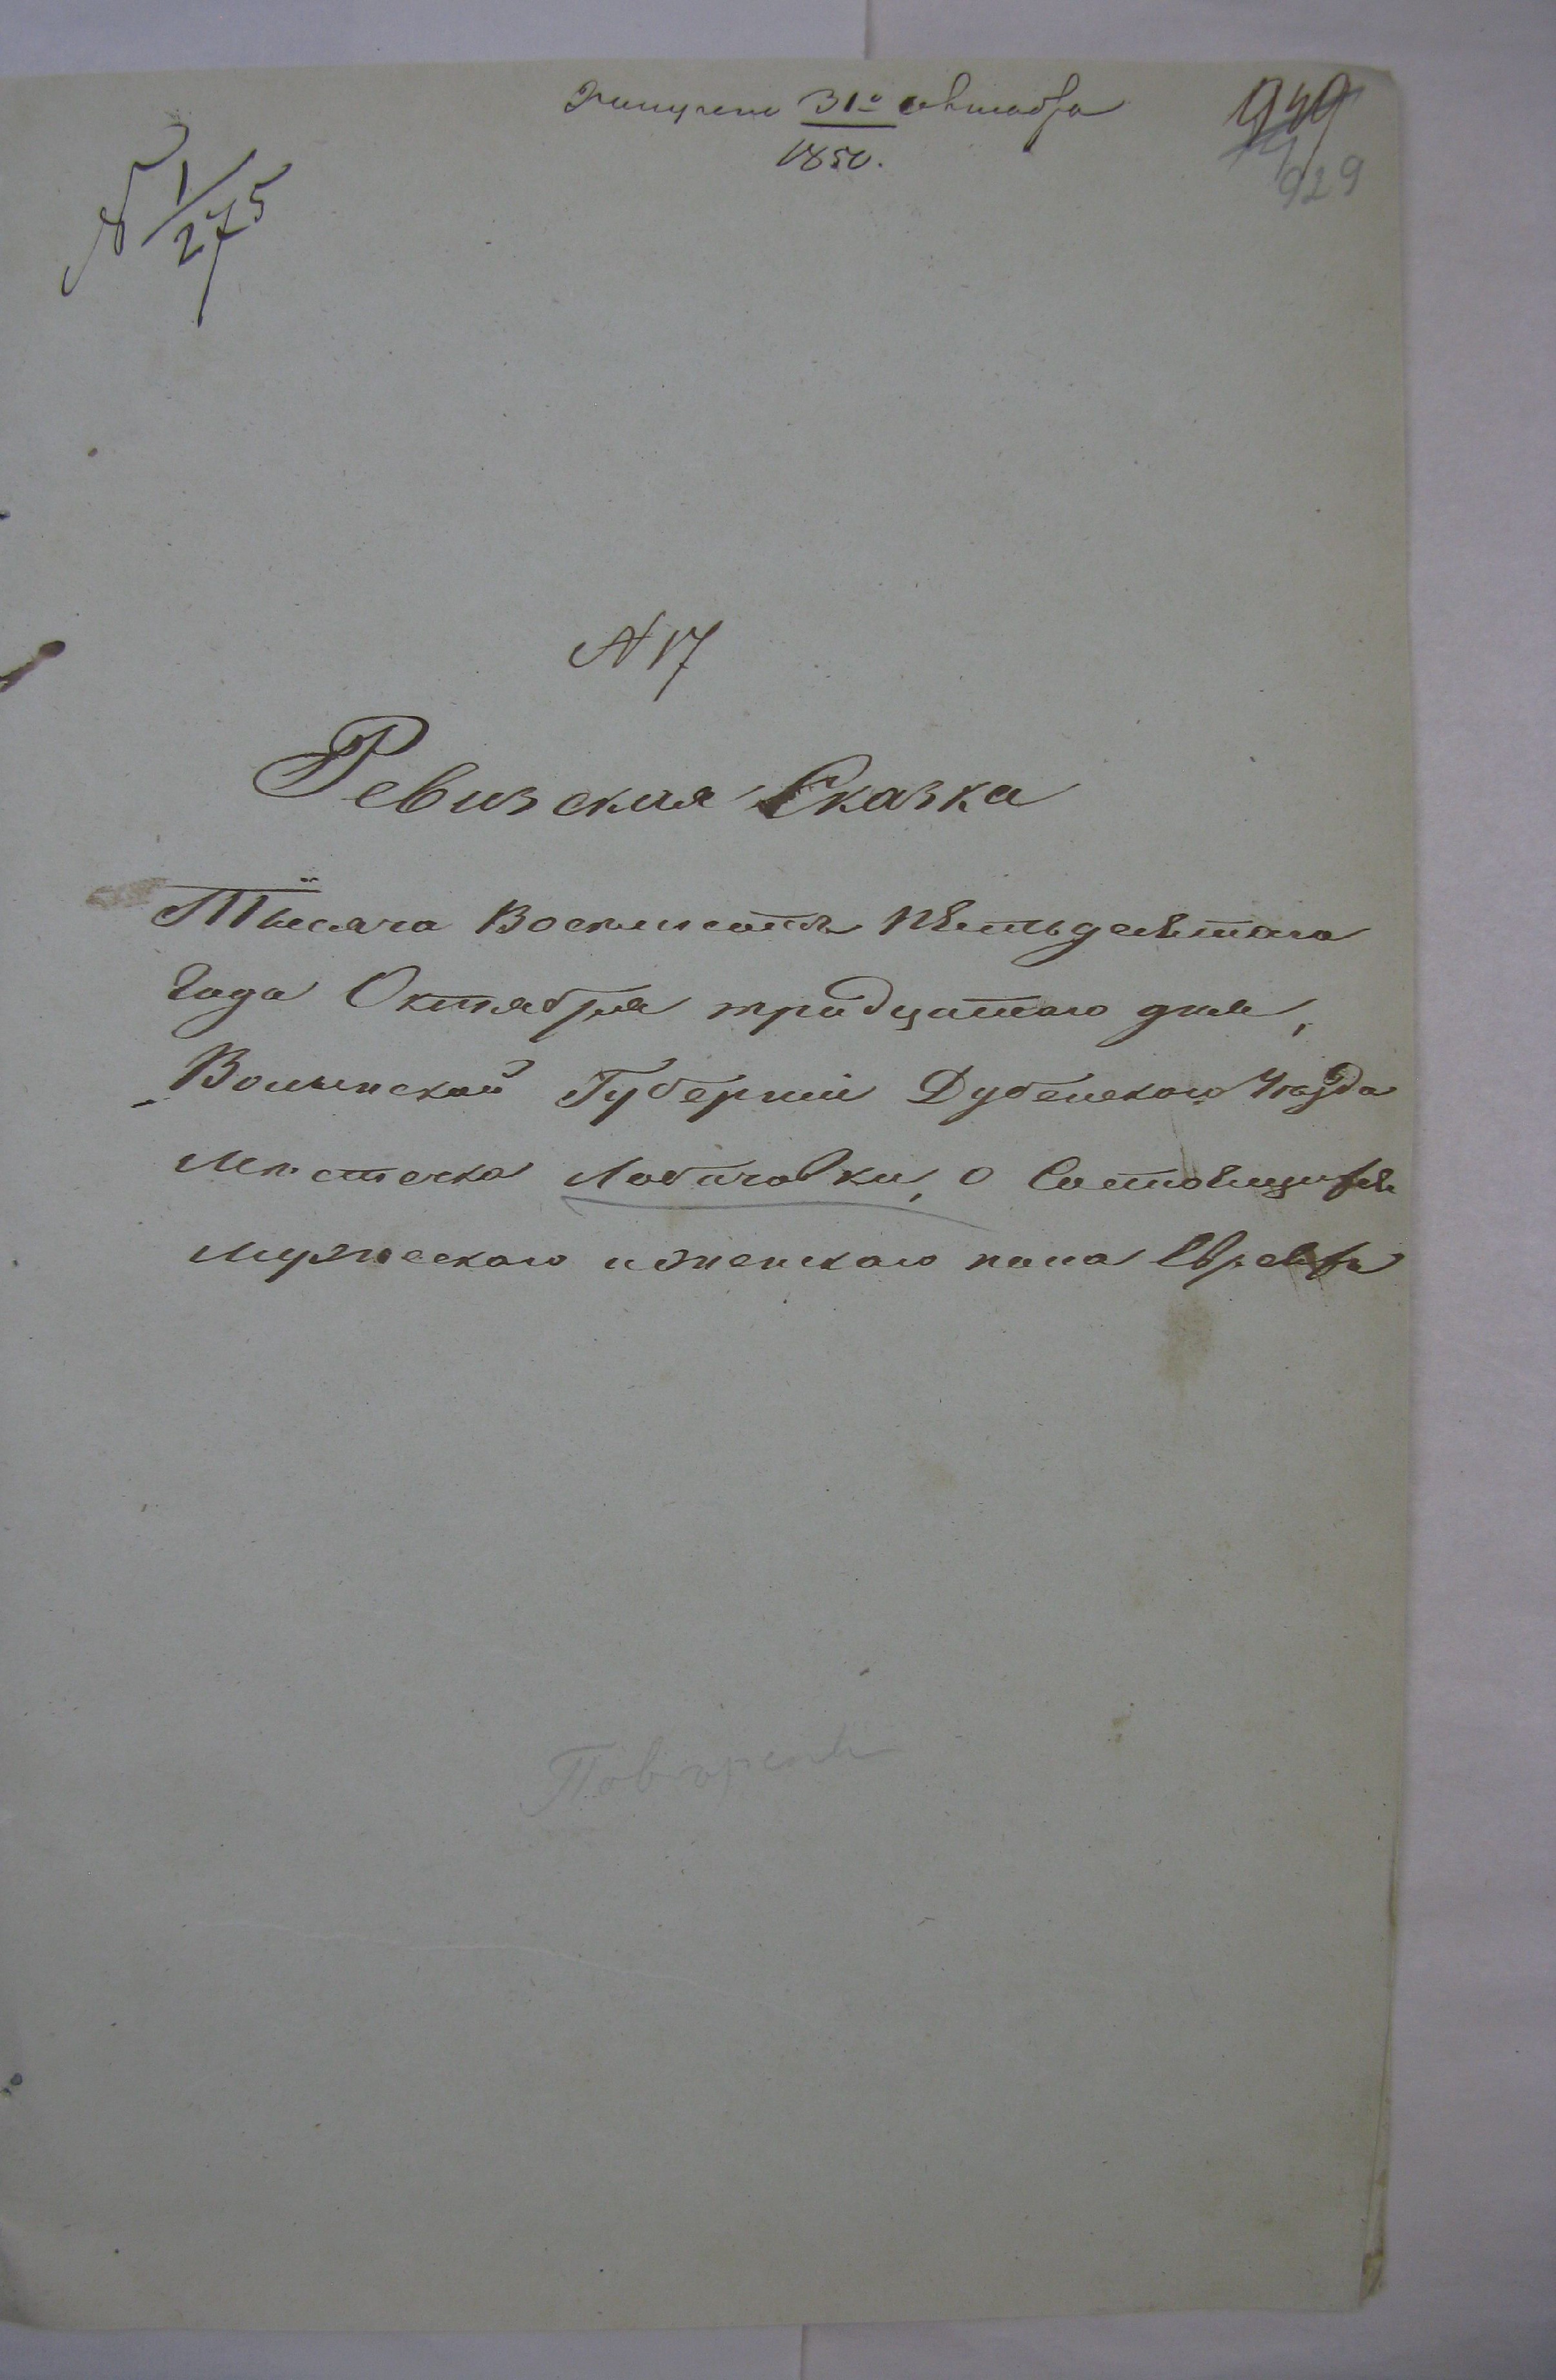 Получено 31го октября
1850.
949
929
№ 1/275
№ 17
Ревизская Сказка
Тысяча Восемьсотъ Пятьдесятаго
Года Октября тридцатаго дня,
Волынской Губерніи Дубенского Уѣзда
Мѣстечка Лобачовки, о Состоящихъ
мужескаго и женскаго пола Евреяхъ